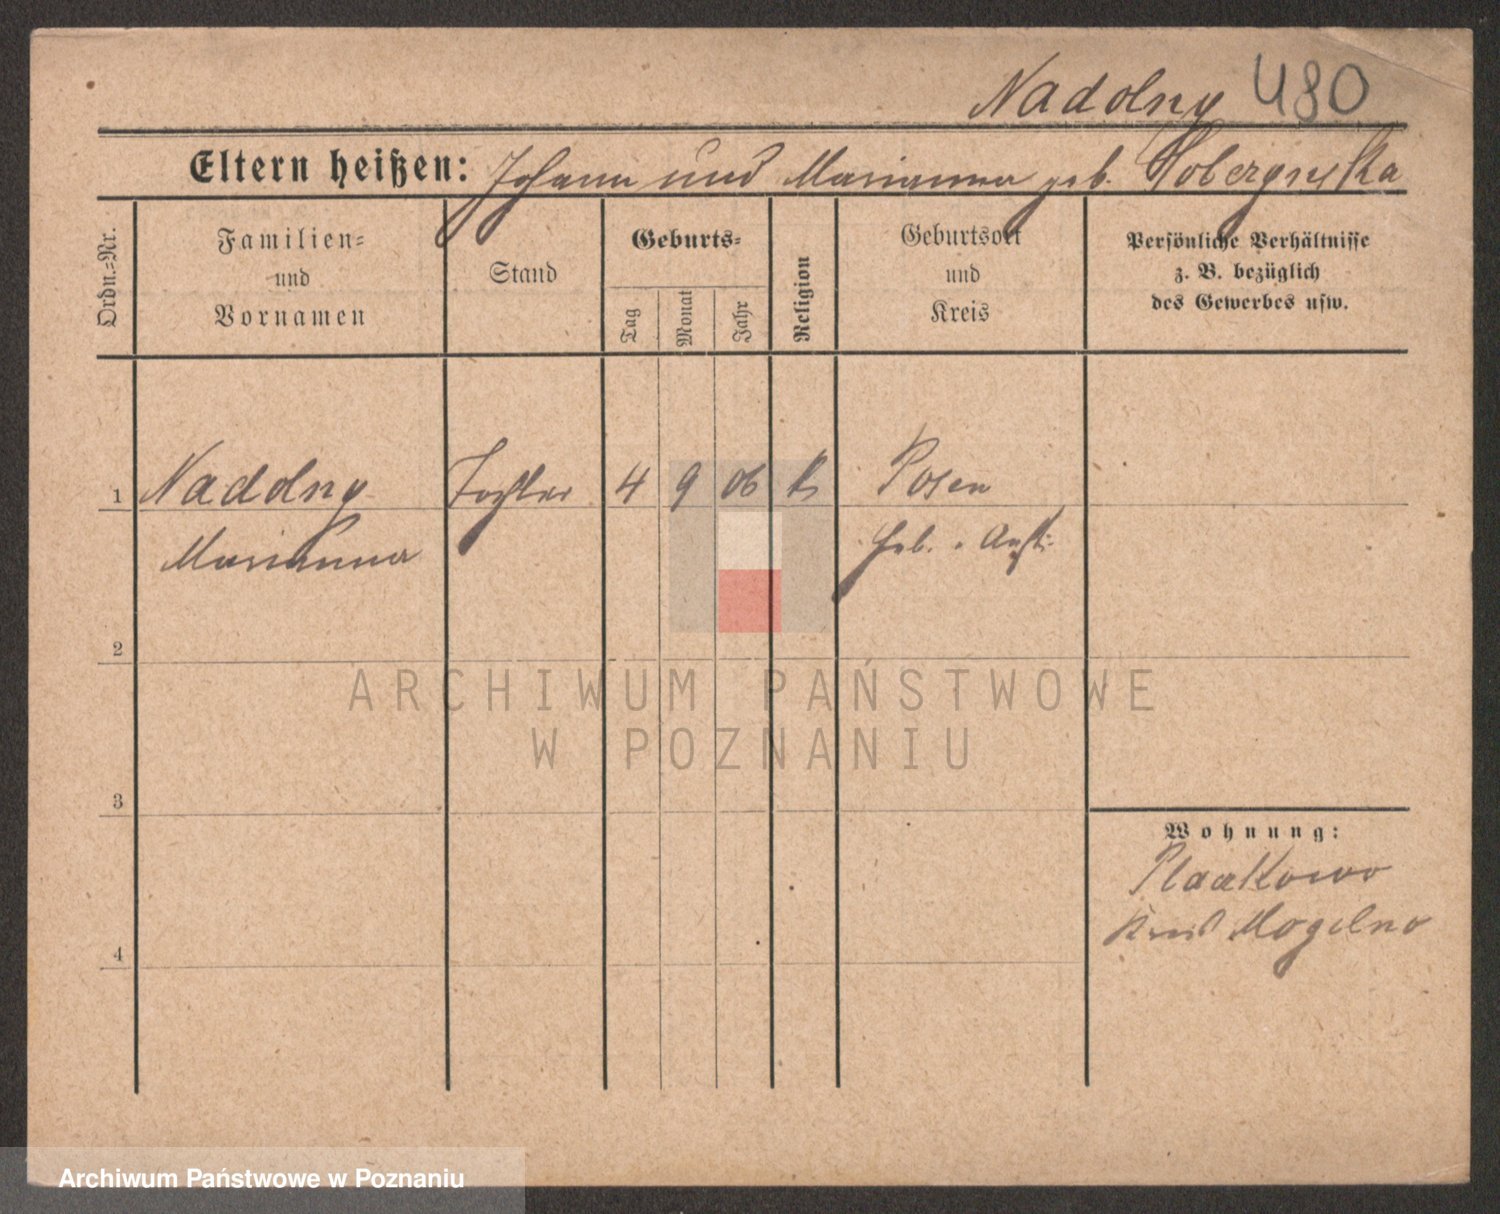 Nadolny 480
Eltern heißen: Johann und Marianna geb.
Ordn.=Nr.
Familien=
und
Vornamen
Stand
Geburts=
Tag
Monat
Jahr
Religion
Geburtsort
und
Kreis
Persönliche Verhältnisse
z. B. bezüglich
des Gewerbes usw.
1 Nadolny Tochter 4 9 06 k Posen
Marianna Geb. Anst.
2
ARCHIWUM PAŃSTWOWE
W POZNANIU
3
Wohnung:
Kreis Mogilno
4
Archiwum Państwowe w Poznaniu